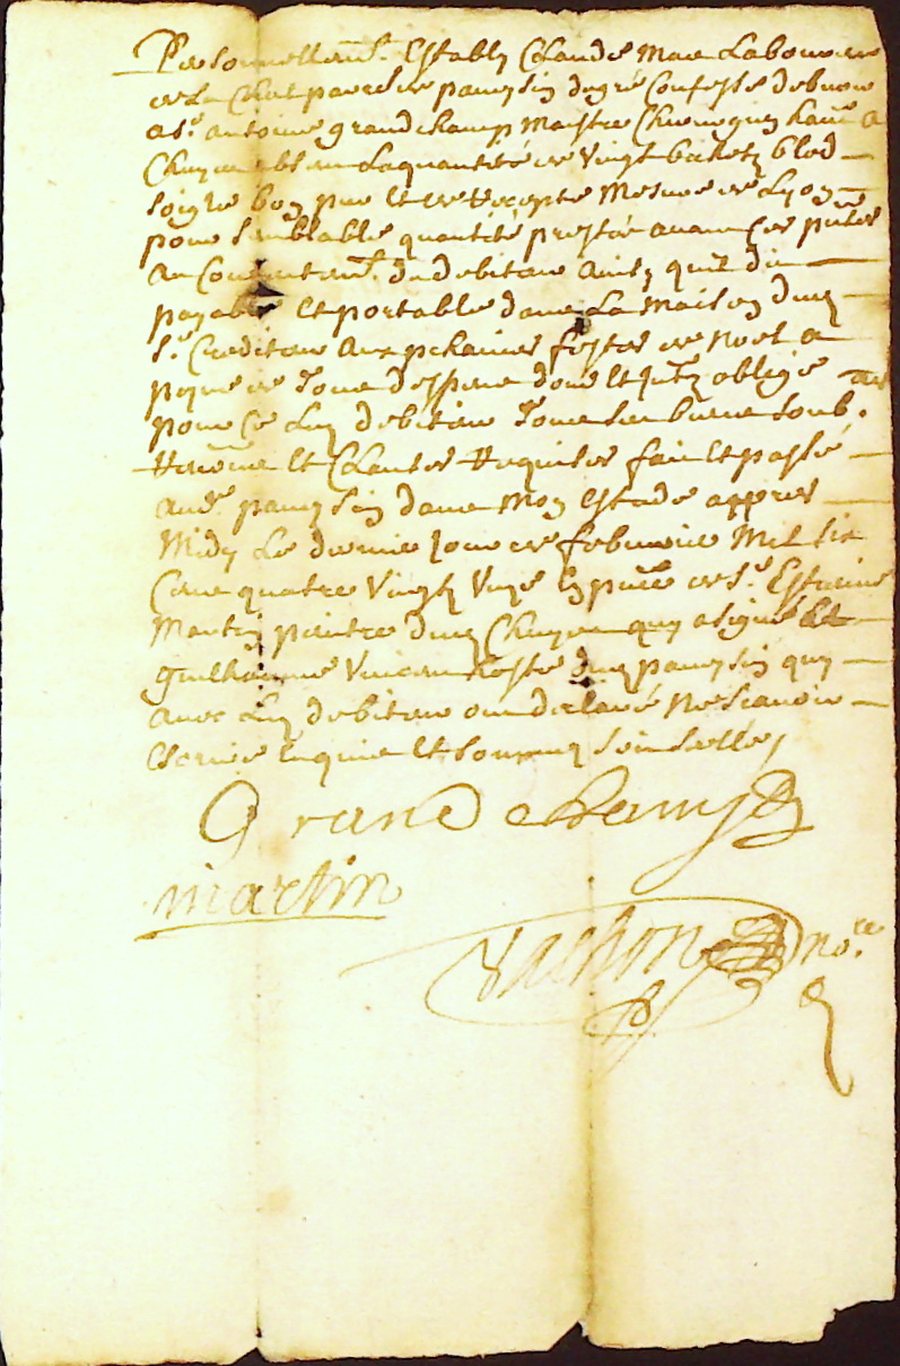 Personnellemt. Estably Claude Mar Laboureur
de La Chal parroisse panyssin de gré Confesse debvoir
a Sr. antoine grandchamp Maistre Chirurgien hant. a
absent Laquantité de Vingt bichetz bled
soigle bon pur Et de Recepte Mesure de Lyon
pour semblable quantité prestée avant Ces pntes
Au Contentemt. du debiteur Ainsy quil dit
payable Et portable dans La maison dud
Sr. Crediteur Aux pchaines festes de noel a
peyne de Tous despens dom Et Intz obligé
pour Ce Led debiteur Tous ses biens soub.
Renonce Et Clauses Requises fait Et passé
Aud. panyssin dans Mon Estude appres
Midy Le dernier Jour de febvrier Mil six
Cent quatre Vingtz Unze En pnce de Sr. Estienne
Martin peintre dud quy a signé Et
guilhaume Vincent hoste dud panyssin quy
avec Led debiteur ont declaré ne scavoir
Escrire Enquis Et sommez suivant
Grandchamp
martin
Vachon nore